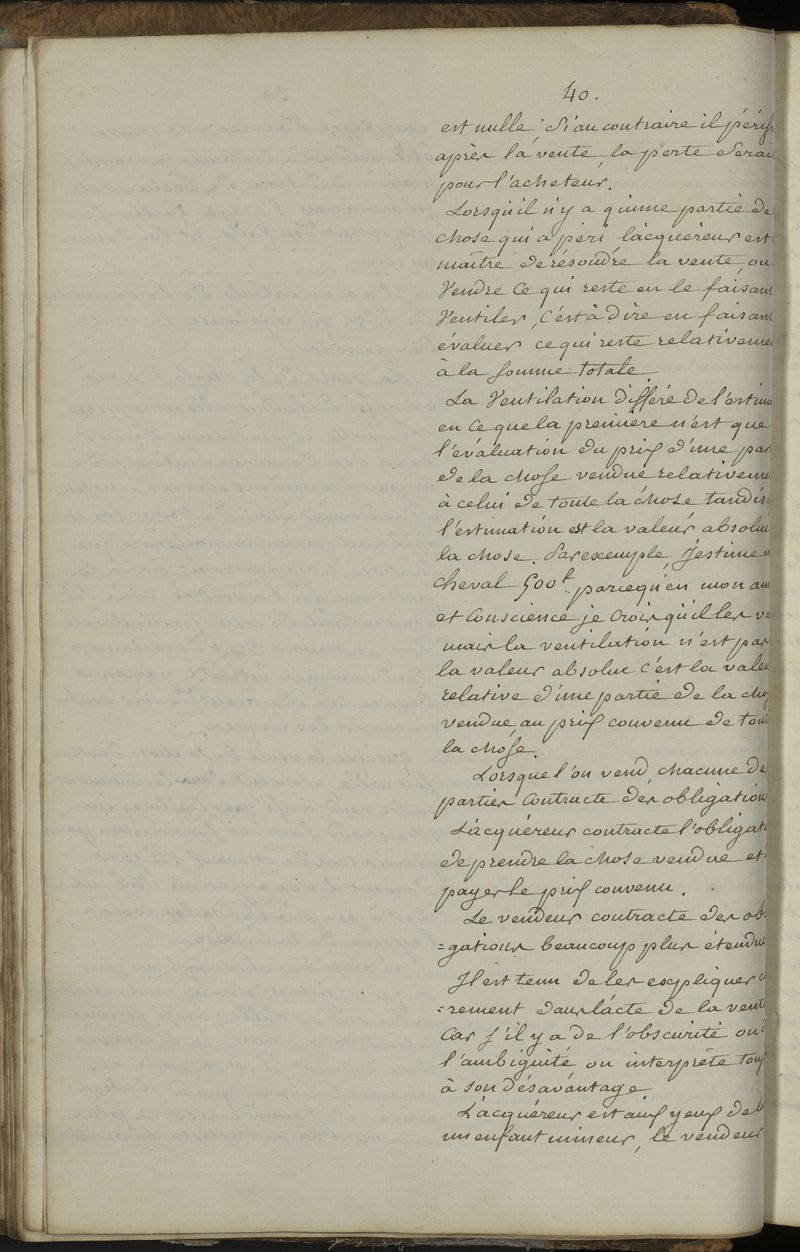 40.
est nulle; Si au contraire il péris
après la vente, la perte serai
pour l'acheteur.
Lorsqu'il n'y a qu'une partie de
chose qui a peri, lacquéreur est
maître de résoudre la vente, ou
Vendre ce qui reste en le faisant
Ventiler, c'est à dire en faisant
évaluer ce qui reste relativeme
à la somme totale.
La Ventilation différe de l'estim
en ce que la première n'est que
l'évaluation du prix d'une par
de la chose vendue relativeme
à celui de toute la chose tandis
l'estimation est la valeur absolue
la chose. Par exemple, J'estime u
cheval 500 parcequ'en mon am
et Conscience je crois qu'il les va
mais la ventilation n'est pas
la valeur absolue c'est la vale
relative d'une partie de la cho
vendue, au prix convenu de tout
la chose.
Lorsque l'on vend, chacune de
parties Contracte des obligation
L'acquéreur contracte l'obligat
de prendre la chose vendue et
payer le prix convenu.
Le vendeur contracte des ob
=gations beaucoup plus étendue
Il est tenu de les expliquer c
=rement dans l'acte de la vent
Car s'il y a de l'obscurité ou d
l'ambiguité on interprète touj
à son désavantage
L'acquéreur est aux yeux de l
un enfant mineur, le vendeur